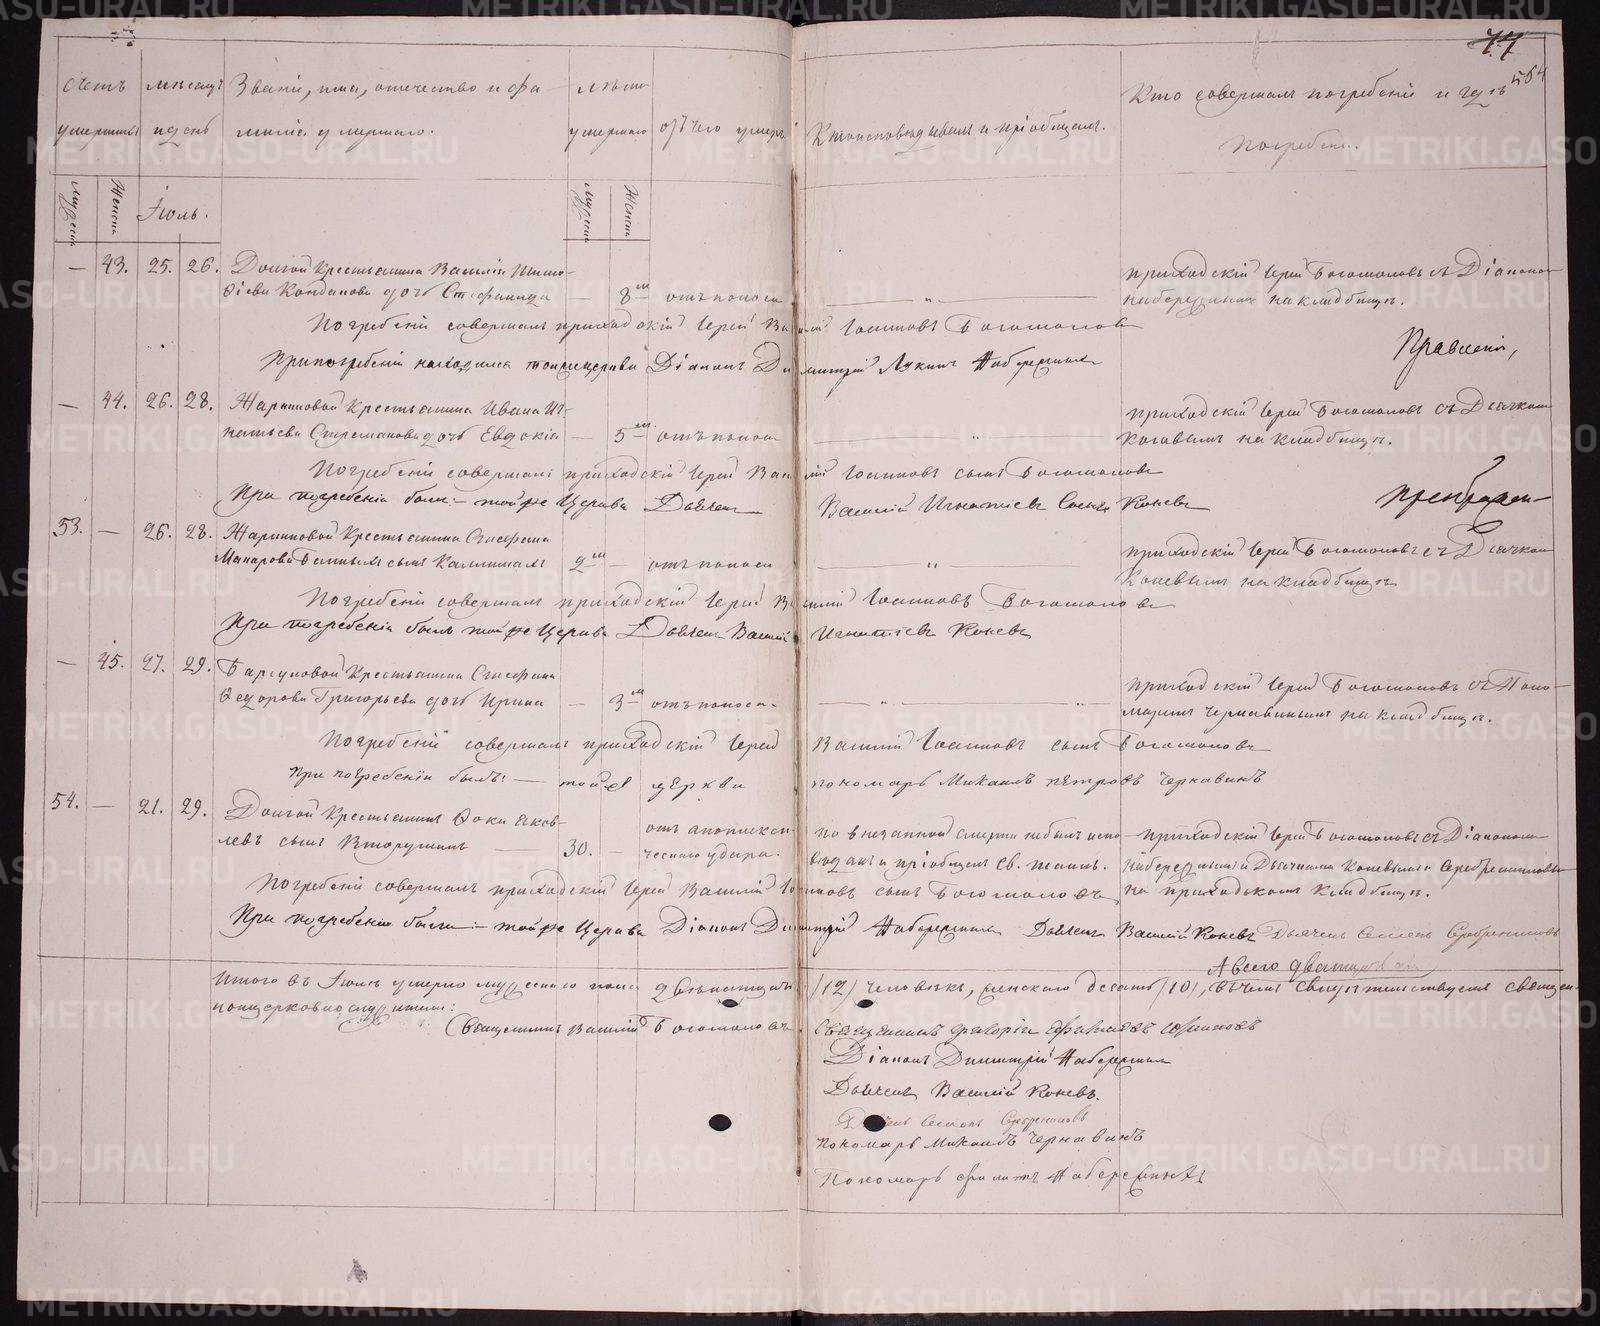 77
564
Счетъ умершихъ
Мѣсяцъ и день
Званіе, имя, отечество и фамилія умершаго.
Лѣта умершаго
отъ чего умеръ
Кто исповѣдывалъ и пріобщалъ.
Кто совершалъ погребеніе и гдѣ погребены.
Мужеска
Женска
Іюль.
Мужеска
Женска
— 43. 25. 26. Долгой Крестьянина Василія
Конданова дочь Стефанида — 8 м отъ поноса
приходскій Іерей Богомоловъ съ Діакономъ
Набережнымъ на кладбищѣ.
Погребеніе совершалъ приходскій Іерей Василій Іоанновъ Богомоловъ
При погребеніи находился тойже церкви Діаконъ Димитрій Лукинъ Набережныхъ
Правленія,
— 44. 26. 28. Жарниковой Крестьянина Ивана Иг-
натьева дочь Евдокія — 5 м отъ поноса
приходскій Іерей Богомоловъ съ Дьячкомъ
Коневымъ на кладбищѣ.
Погребеніе совершалъ приходскій Іерей Василій Іоанновъ сынъ Богомоловъ
При погребеніи былъ тойже Церкви Дьячекъ Василій Игнатіевъ Сынъ Коневъ
53. — 26. 28. Жарниковой Крестьянина Стефана
Макарова сынъ 2 м — отъ поноса
приходскій Іерей Богомоловъ съ Дьячкомъ
Коневымъ на кладбищѣ
Погребеніе совершалъ приходскій Іерей Василій Іоанновъ Богомоловъ
При погребеніи былъ тойже Церкви Дьячекъ Василій Игнатіевъ Коневъ
— 45. 27. 29. Барсуковой Крестьянина Стефана
Ѳедорова Григорьева дочь Ирина — 3 м отъ поноса
приходскій Іерей Богомоловъ съ Поно-
маремъ Чернавинымъ на кладбищѣ.
Погребеніе совершалъ приходскій Іерей Василій Іоанновъ сынъ Богомоловъ
При погребеніи былъ: — той же церкви пономарь Михаилъ Петровъ Чернавинъ
54. — 21. 29. Долгой Крестьянинъ Ѳока Яков-
левъ сынъ Вторушинъ — 30. — отъ апоплекси-
ческаго удара.
по внезапной смерти небылъ испо-
вѣданъ и пріобщенъ Св. таинъ.
приходскій Іерей Богомоловъ съ Діакономъ
Набережнымъ и Дьячками Коневымъ и Серебрениковымъ
на приходскомъ кладбищѣ.
Погребеніе совершалъ приходскій Іерей Василій Іоанновъ сынъ Богомоловъ
При погребеніи были: тойже Церкви Діаконъ Димитрій Набережныхъ Дьячекъ Василій Коневъ Дьячекъ Семенъ Серебрениковъ
А всего двадцать два
Итого въ Іюлѣ умерло мужескаго пола двѣнатцать /12/ человѣкъ, женскаго десять /10/, въ чемъ свидѣтельствуемъ священ-
ноцерковнослужители:
Священникъ Василій Богомоловъ
Священникъ
Діаконъ Димитрій Набережныхъ
Дьячекъ Василій Коневъ.
Дьячекъ Семенъ Серебрениковъ
Пономарь Михаилъ Чернавинъ
Пономарь Филипъ Набережныхъ
METRIKI.GASO-URAL.RU